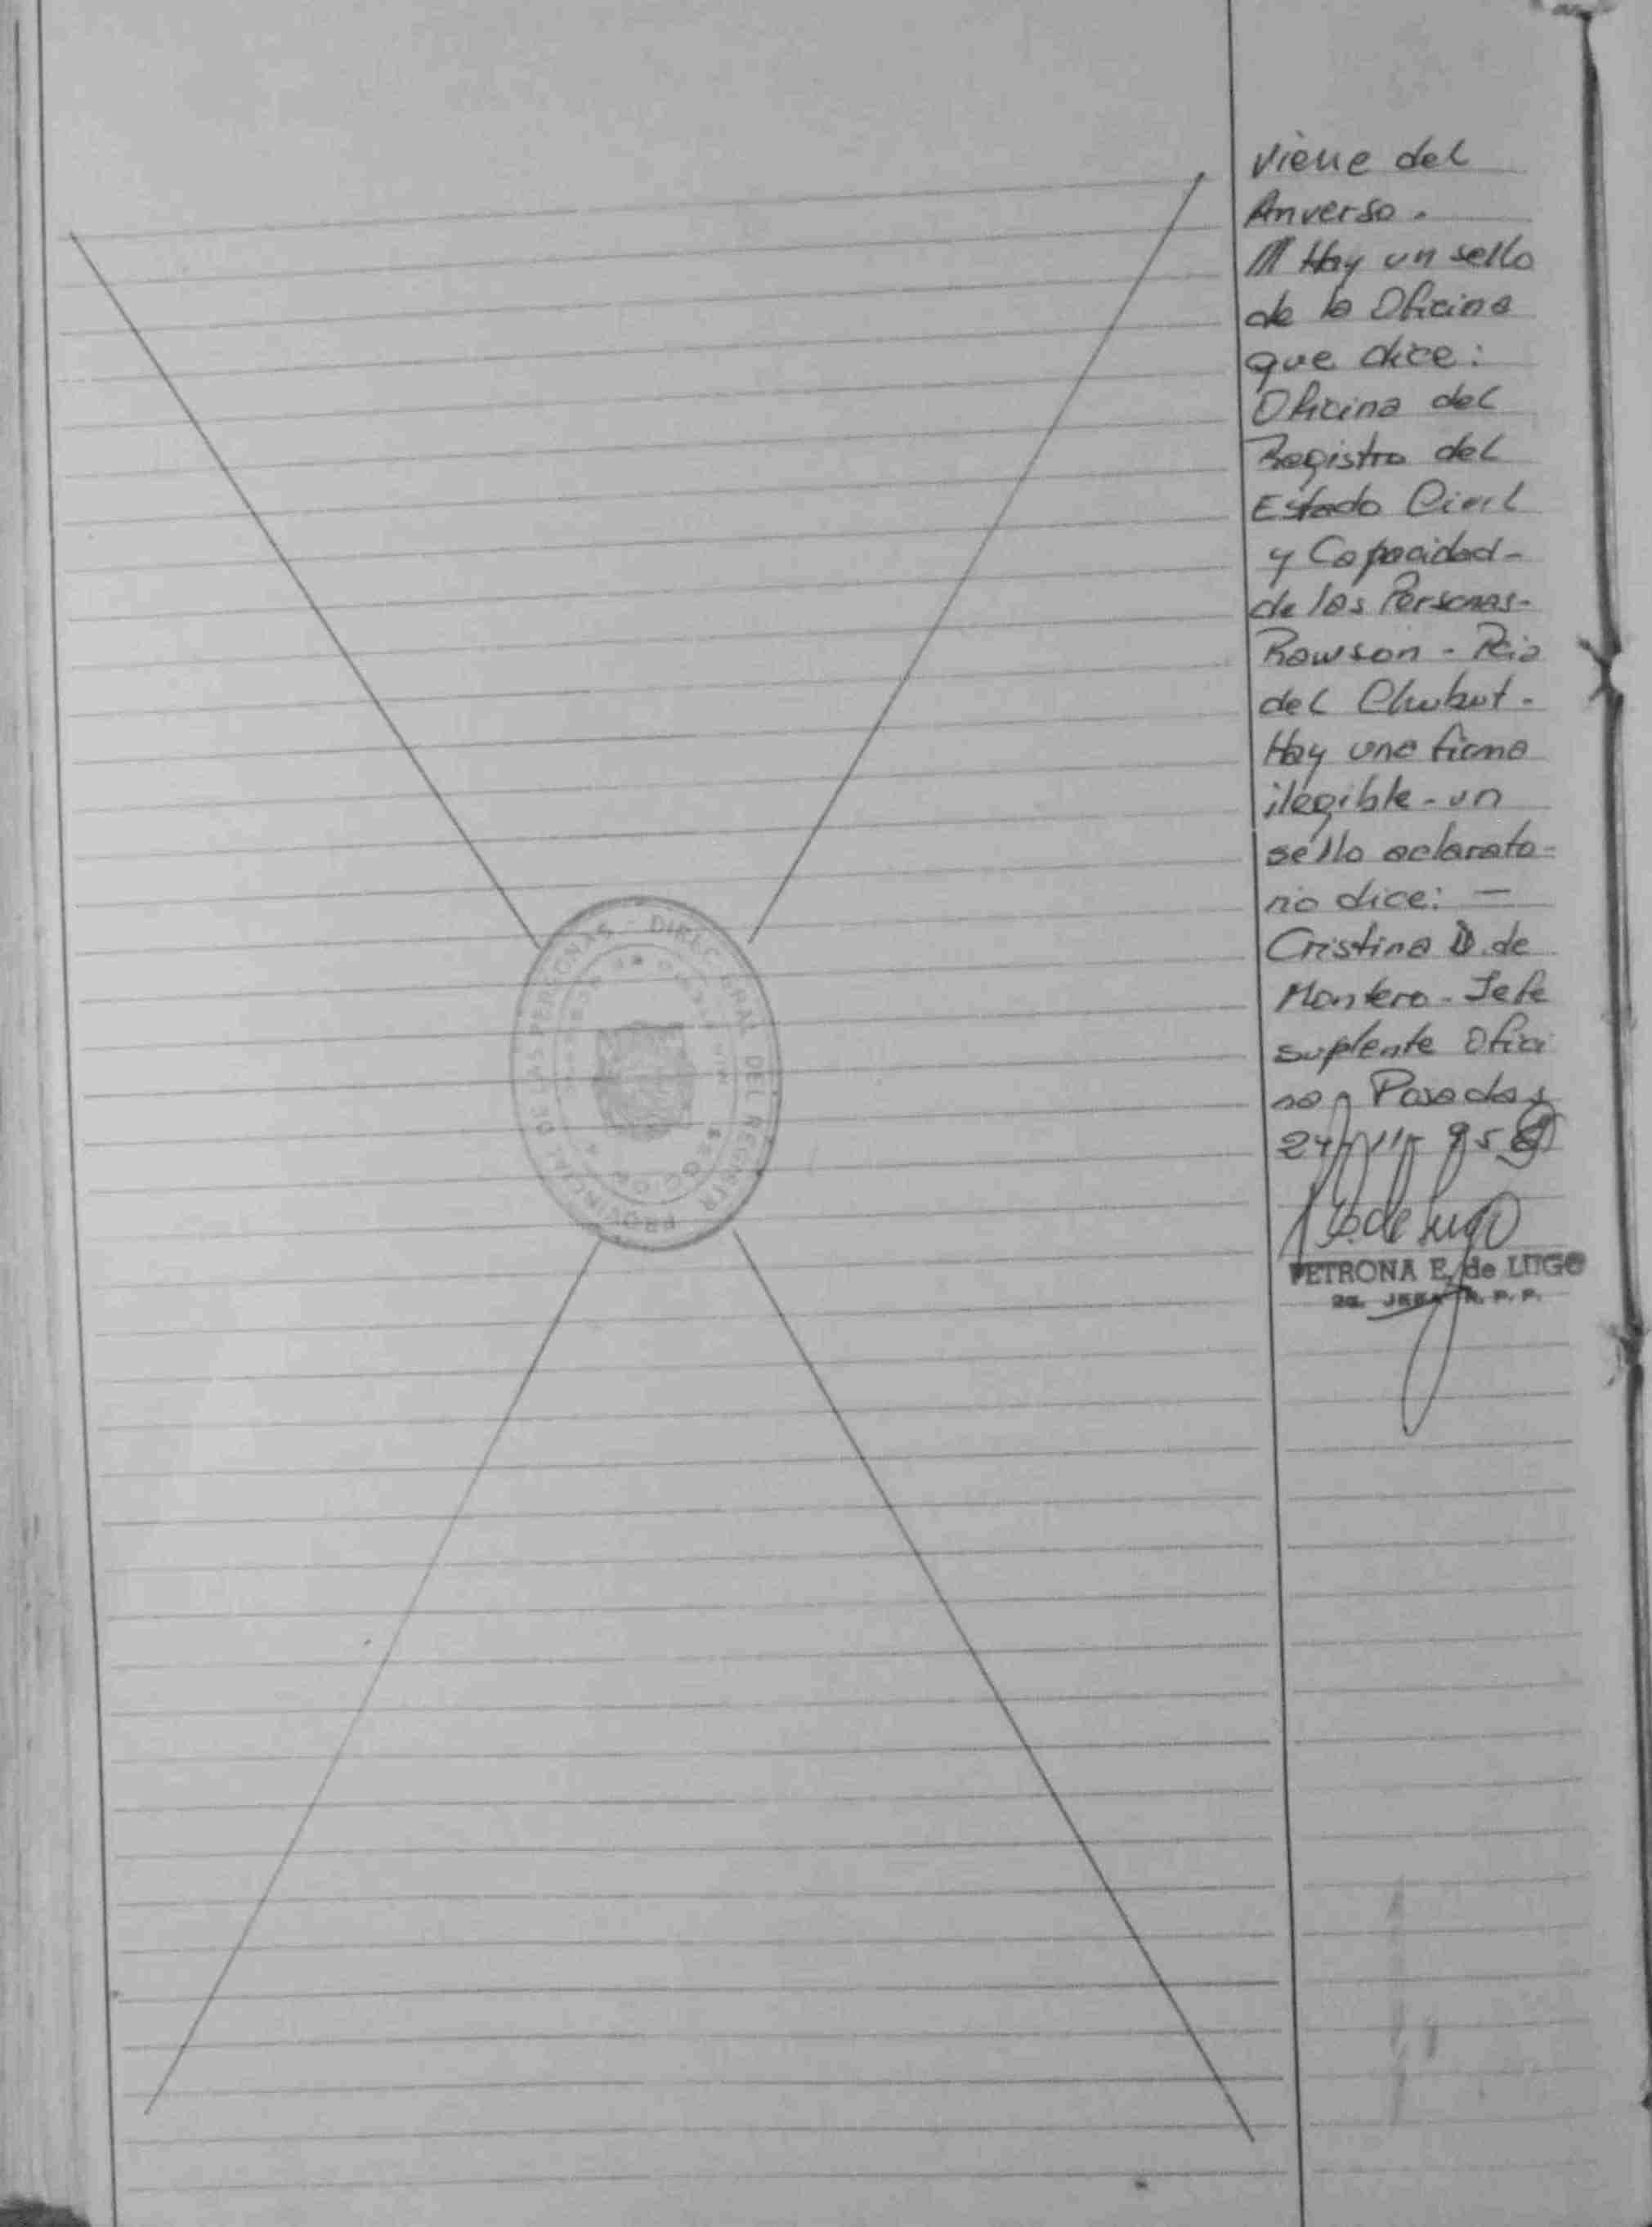 Viene del
Anverso.
/// Hay un sello
de la Oficina
que dice:
Oficina del
Registro del
Estado Civil
y Capacidad-
de las Personas-
Rawson - Pcia
del Chubut.
Hay una firma
ilegible - un
sello aclarato-
rio dice: —
Cristina D. de
Montero - Jefe
suplente Ofici
na - Posadas
PETRONA E. de LUGO
PROVINCIAL DE LAS PERSONAS - DIREC. GRAL. DEL REGISTR